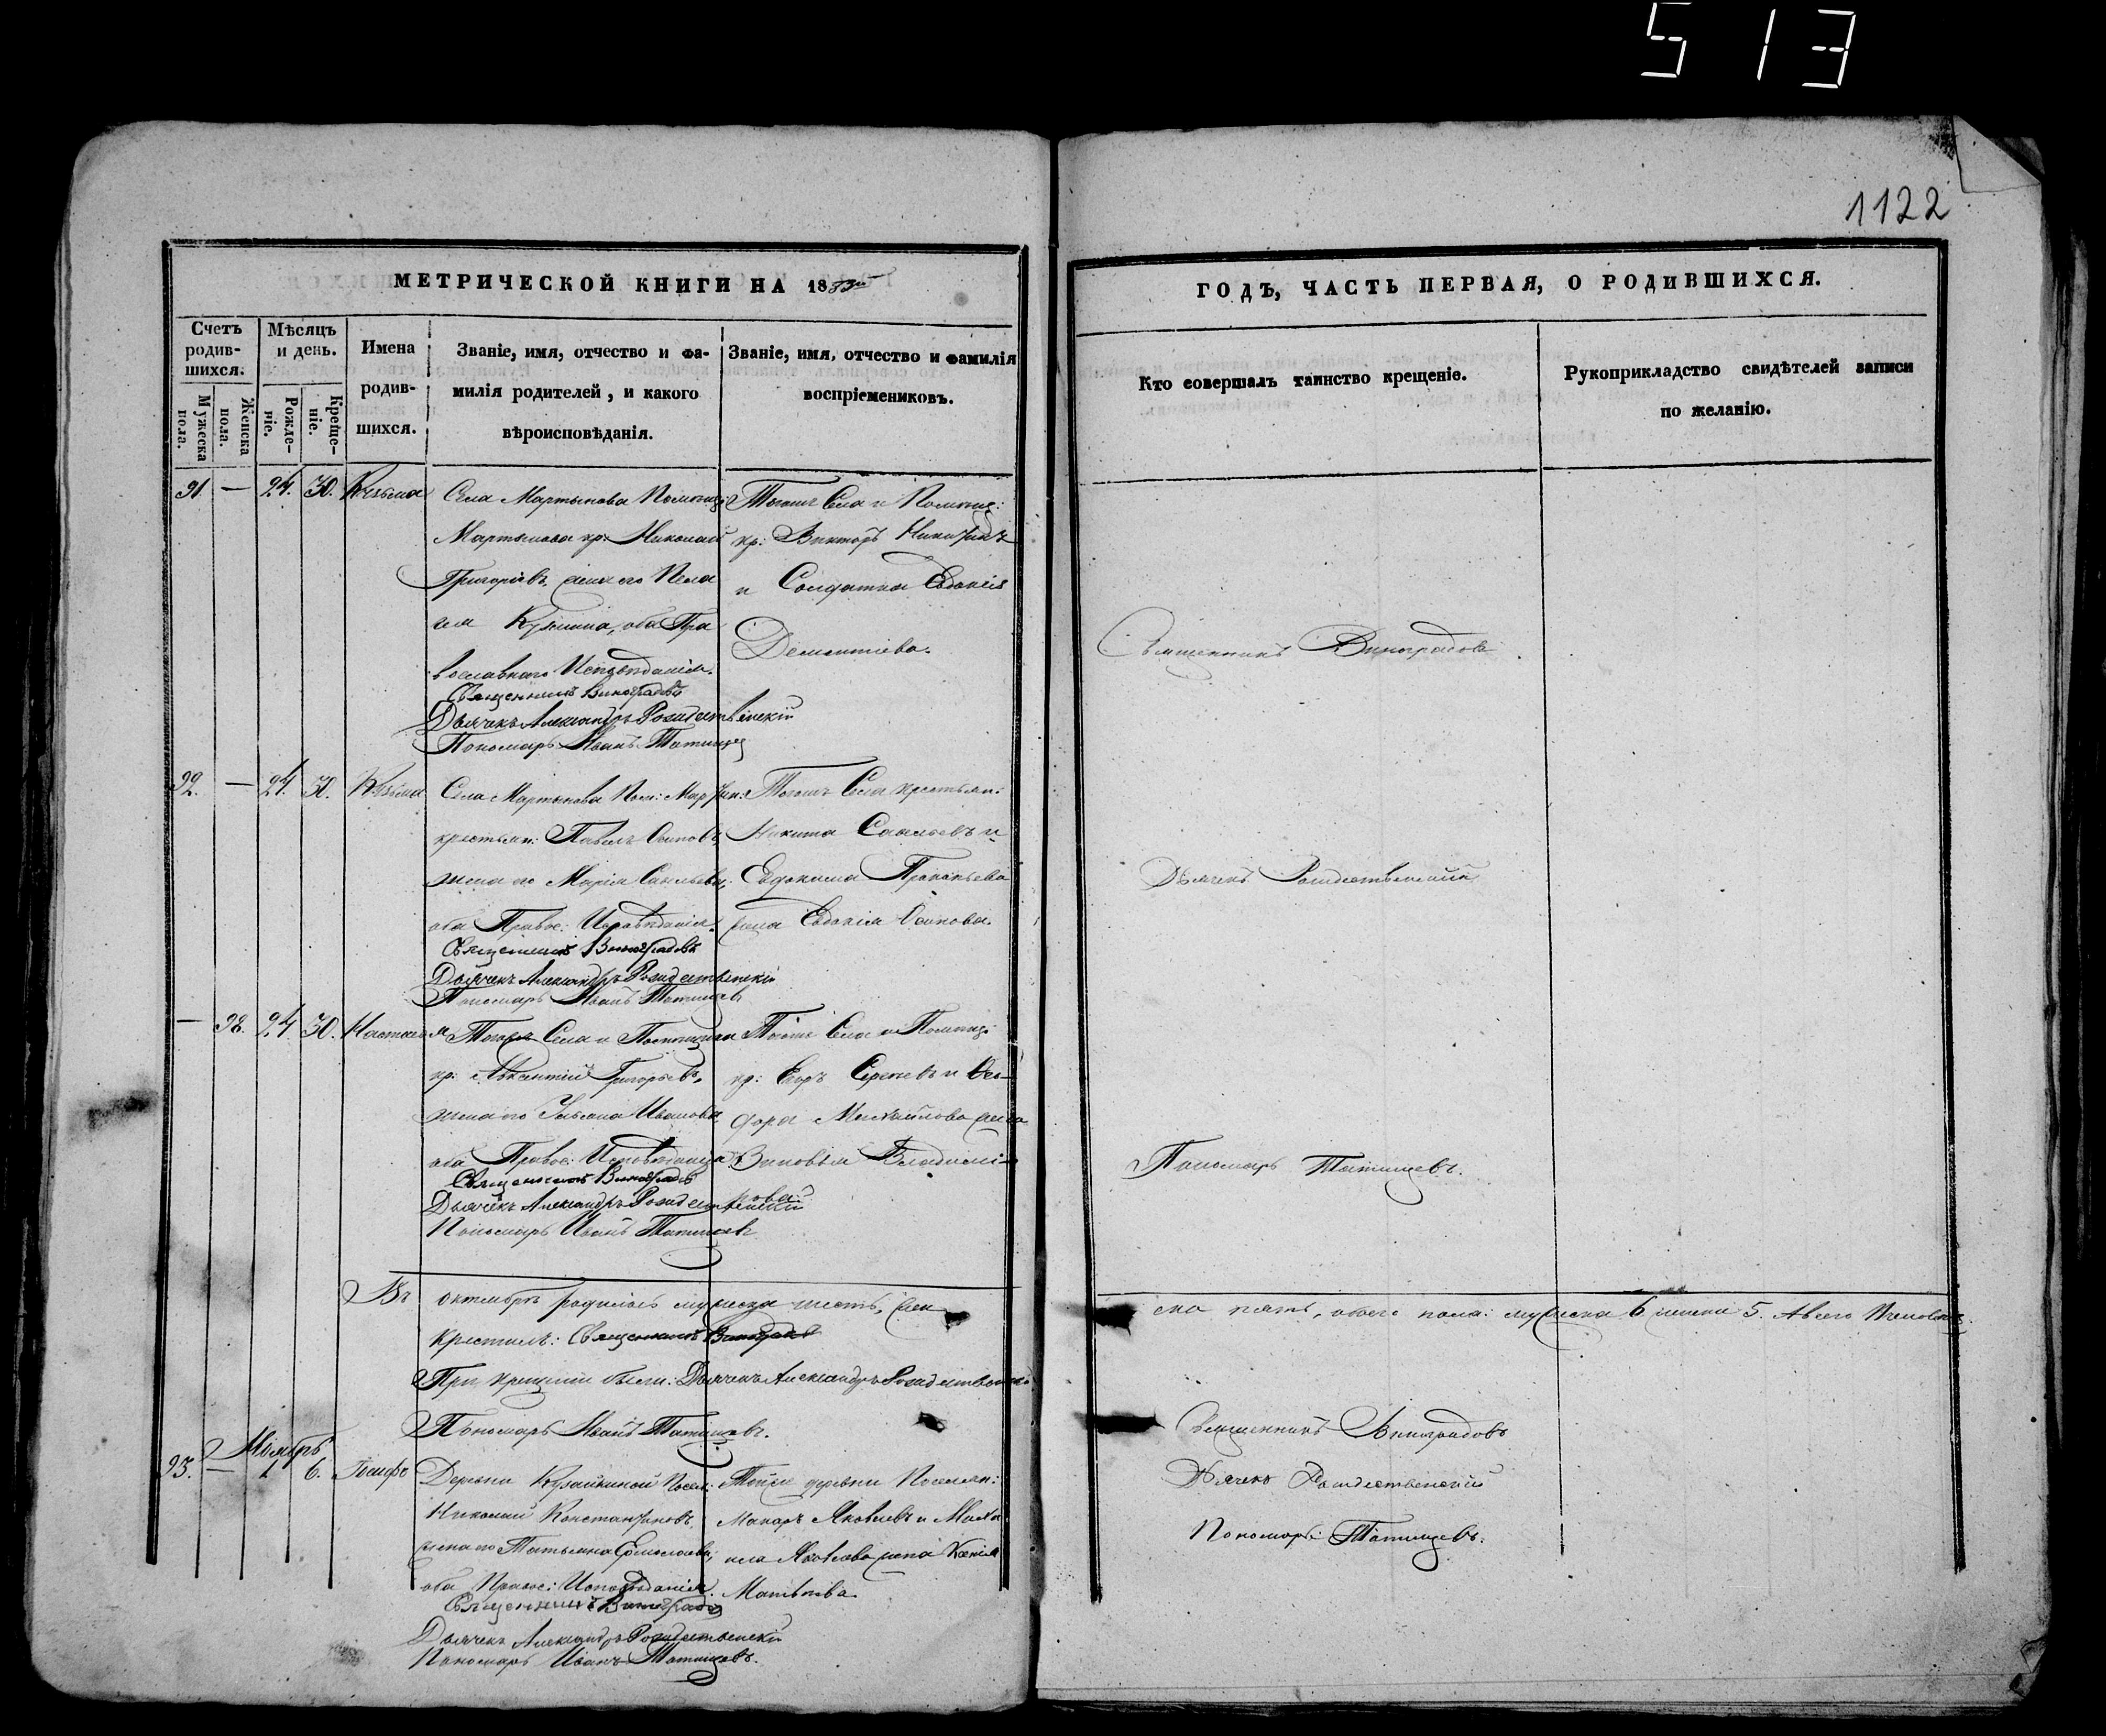 513
1122
МЕТРИЧЕСКОЙ КНИГИ НА 18
ГОДЪ, ЧАСТЬ ПЕРВАЯ, О РОДИВШИХСЯ.
Счетъ родив-шихся.
Мужеска пола.
Женска пола.
Мѣсяцъ и день.
Рожде-ніе.
Креще-ніе.
Имена родив-шихся.
Званіе, имя, отчество и фа-
милія родителей, и какого
вѣроисповѣданія.
Званіе, имя, отчество и фамилія
воспріемениковъ.
Кто совершалъ таинство крещеніе.
Рукоприкладство свидѣтелей записи
по желанію.
91. — 24. 30. Козьма
Села Мартынова
кр: Николай
Григорьевъ, жена его Пела
гея Кузмина, оба Пра
вославнаго Исповѣданія.
Священникъ Виноградовъ
Дьячекъ Александръ Рождественскій
Пономарь Иванъ Татищевъ
Тогожъ Села и
кр: Викторъ
и Солдатка Евдокія
Дементіева.
Священникъ Виноградовъ
92. — 24. 30. Козьма
Села Мартынова Пом:
крестьян: Павелъ Осиповъ,
жена его Марія Савельева,
оба Правос: Исповѣданія.
Священникъ Виноградовъ
Дьячекъ Александръ Рождественскій
Пономарь Иванъ Татищевъ
Тогожъ Села крестьян:
Никита Савельевъ и
жена Евдокія Осипова.
Дьячекъ Рождественскій
— 98. 24. 30. Настасья
Тогожъ Села и Помѣщика
кр: Григорьевъ,
жена его Ульяна Иванова
оба Правос: Исповѣданія
Священникъ Виноградовъ
Дьячекъ Александръ Рождественскій
Пономарь Иванъ Татищевъ
Тогожъ Села и Помѣщ:
кр: Егоръ Сергеевъ и Ѳео-
дора Михайлова жена
Зиновья Владимі-
рова.
Пономарь Татищевъ.
Въ октябрѣ родилось мужеска шесть, жен
ска пять, обоего пола: мужска 6 женска 5. А всего
Крестилъ: Священникъ Виноградовъ
При крещеніи были: Дьячекъ Александръ Рождественскій
Пономарь Иванъ Татищевъ.
Священникъ Виноградовъ
Дьячекъ Рождественскій
Пономарь Татищевъ.
Ноябрь
93. — 6. Іосифъ
Деревни Посел:
Николай Константиновъ,
жена его Татьяна Ермолаева,
оба Правос: Исповѣданія.
Священникъ Виноградовъ
Дьячекъ Александръ Рождественскій
Пономарь Иванъ Татищевъ.
Тойже деревни Поселян:
Макаръ Яковлевъ и Миха
ила Яковлева жена Ксенія
Матвѣева.